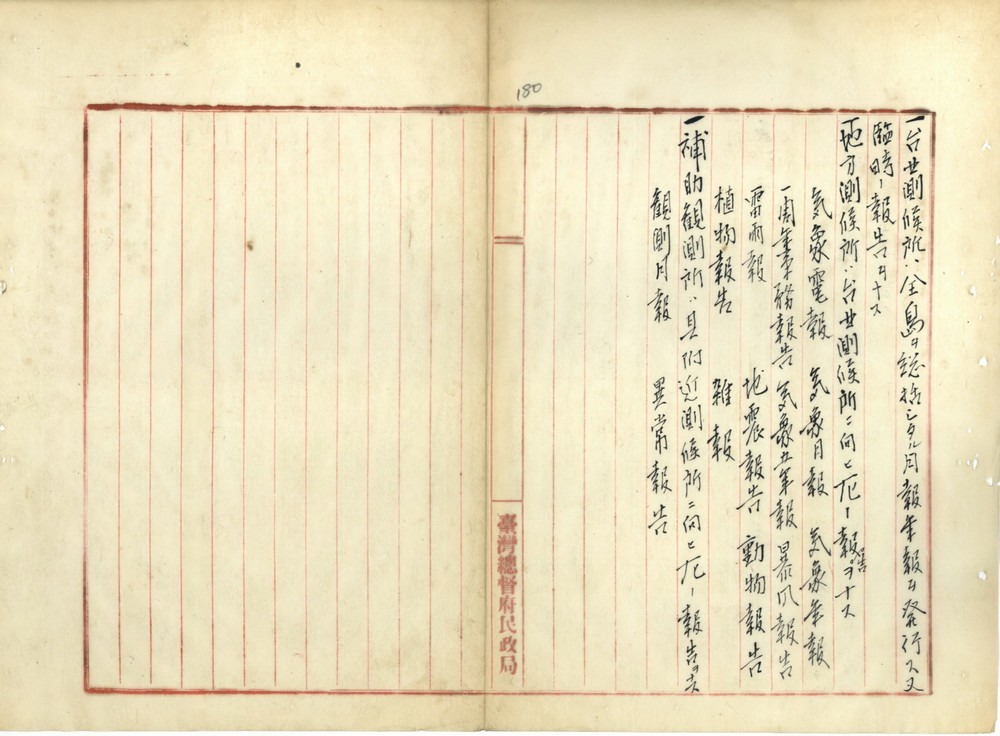 180
一台中測候所ハ全島ヲ総括シタル月報年報ヲ発行ス又
臨時ノ報告ヲナス
一地方測候所ハ台中測候所ニ向ヒ左ノ報告ヲナス
気象電報 気象月報 気象年報
一周年事務報告 気象五年報 暴風報告
雷雨報 地震報告 動物報告
植物報告 雑報
一補助観測所ハ其附近測候所ニ向ヒ左ノ報告ヲナス
観測月報 異常報告
臺灣總督府民政局